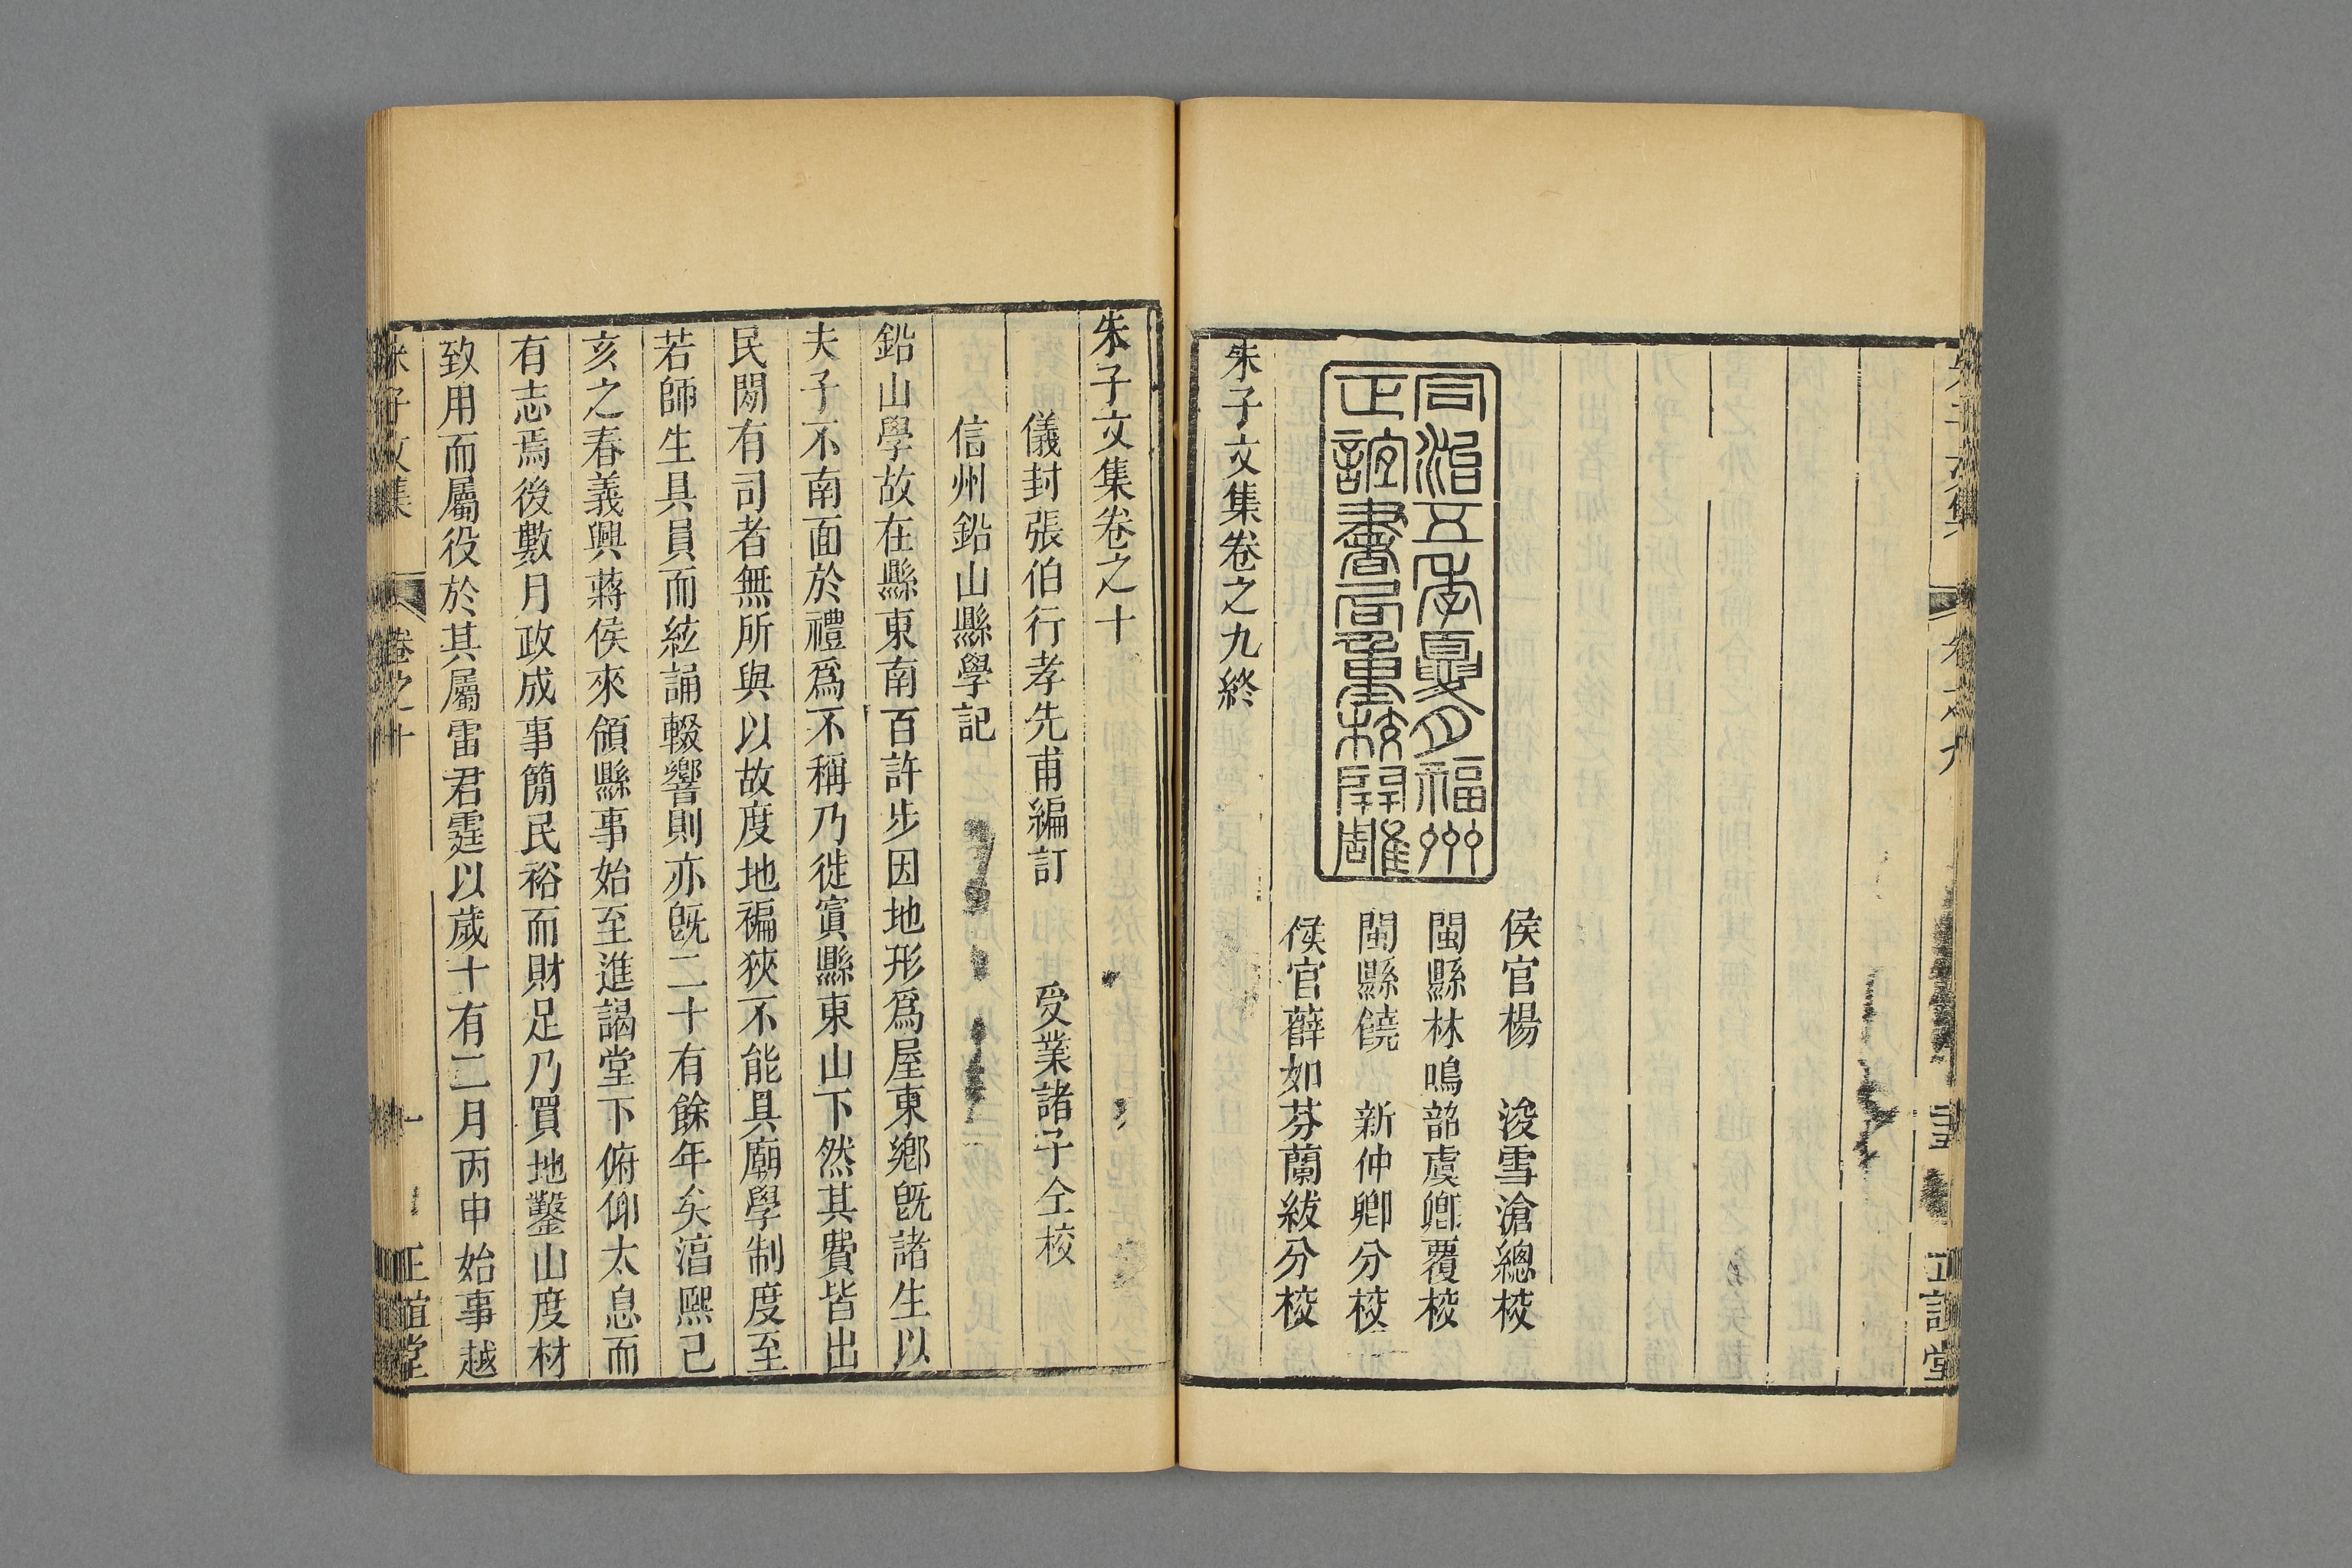 朱子文集 卷之九 正誼堂
侯官楊 浚雪滄總校
閩縣林鳴韶虞卿覆校
閩縣饒 新仲卿分校
侯官薛如芬蘭紱分校
同治五年夏月福州
正誼書局重校開雕
朱子文集卷之九終
朱子文集卷之十
儀封張伯行孝先甫編訂 受業諸子仝校
信州鉛山縣學記
鉛山學故在縣東南百許步因地形爲屋東鄉旣諸生以
夫子不南面於禮爲不稱乃徙寘縣東山下然其費皆出
民閒有司者無所與以故度地褊狹不能具廟學制度至
若師生具員而絃誦輟響則亦旣二十有餘年矣湻熙己
亥之春義興蔣侯來領縣事始至進謁堂下俯仰太息而
有志焉後數月政成事簡民裕而財足乃買地鑿山度材
致用而屬役於其屬雷君霆以歲十有二月丙申始事越
朱子文集 卷之十 一 正誼堂